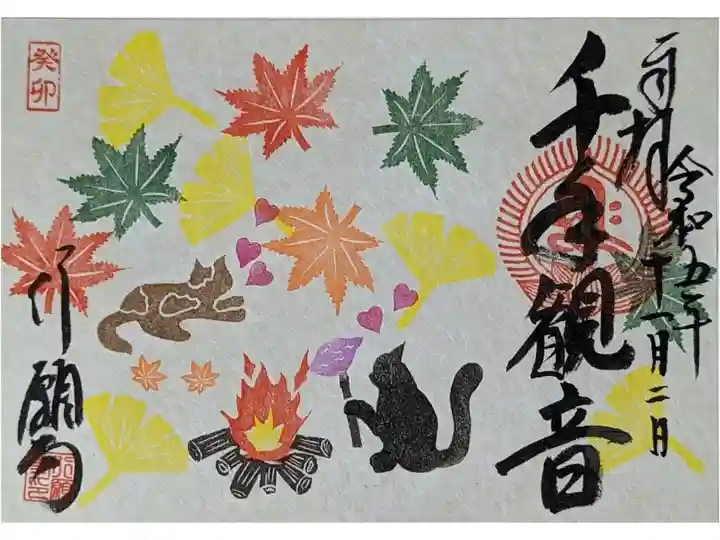 奉拝
令和五年
十一月二日
千手観音
行願寺
癸卯
行願